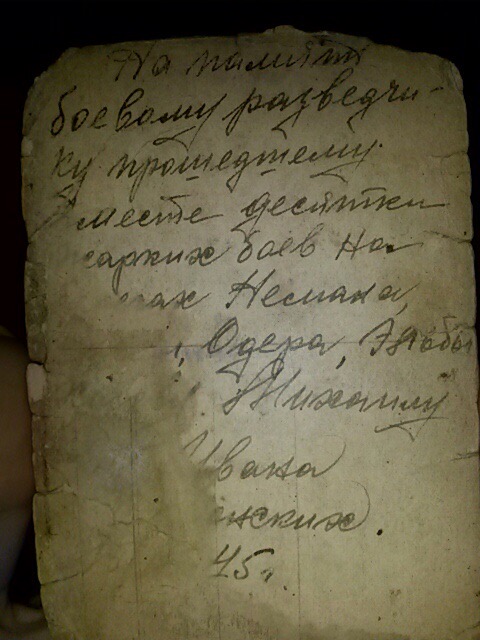 На память
боевому разведчи-
ку прошедшему
вместе десятки
жарких боев на
Немана,
, Одера, Эльбы
Михаилу
Ивана
нских.
45г.